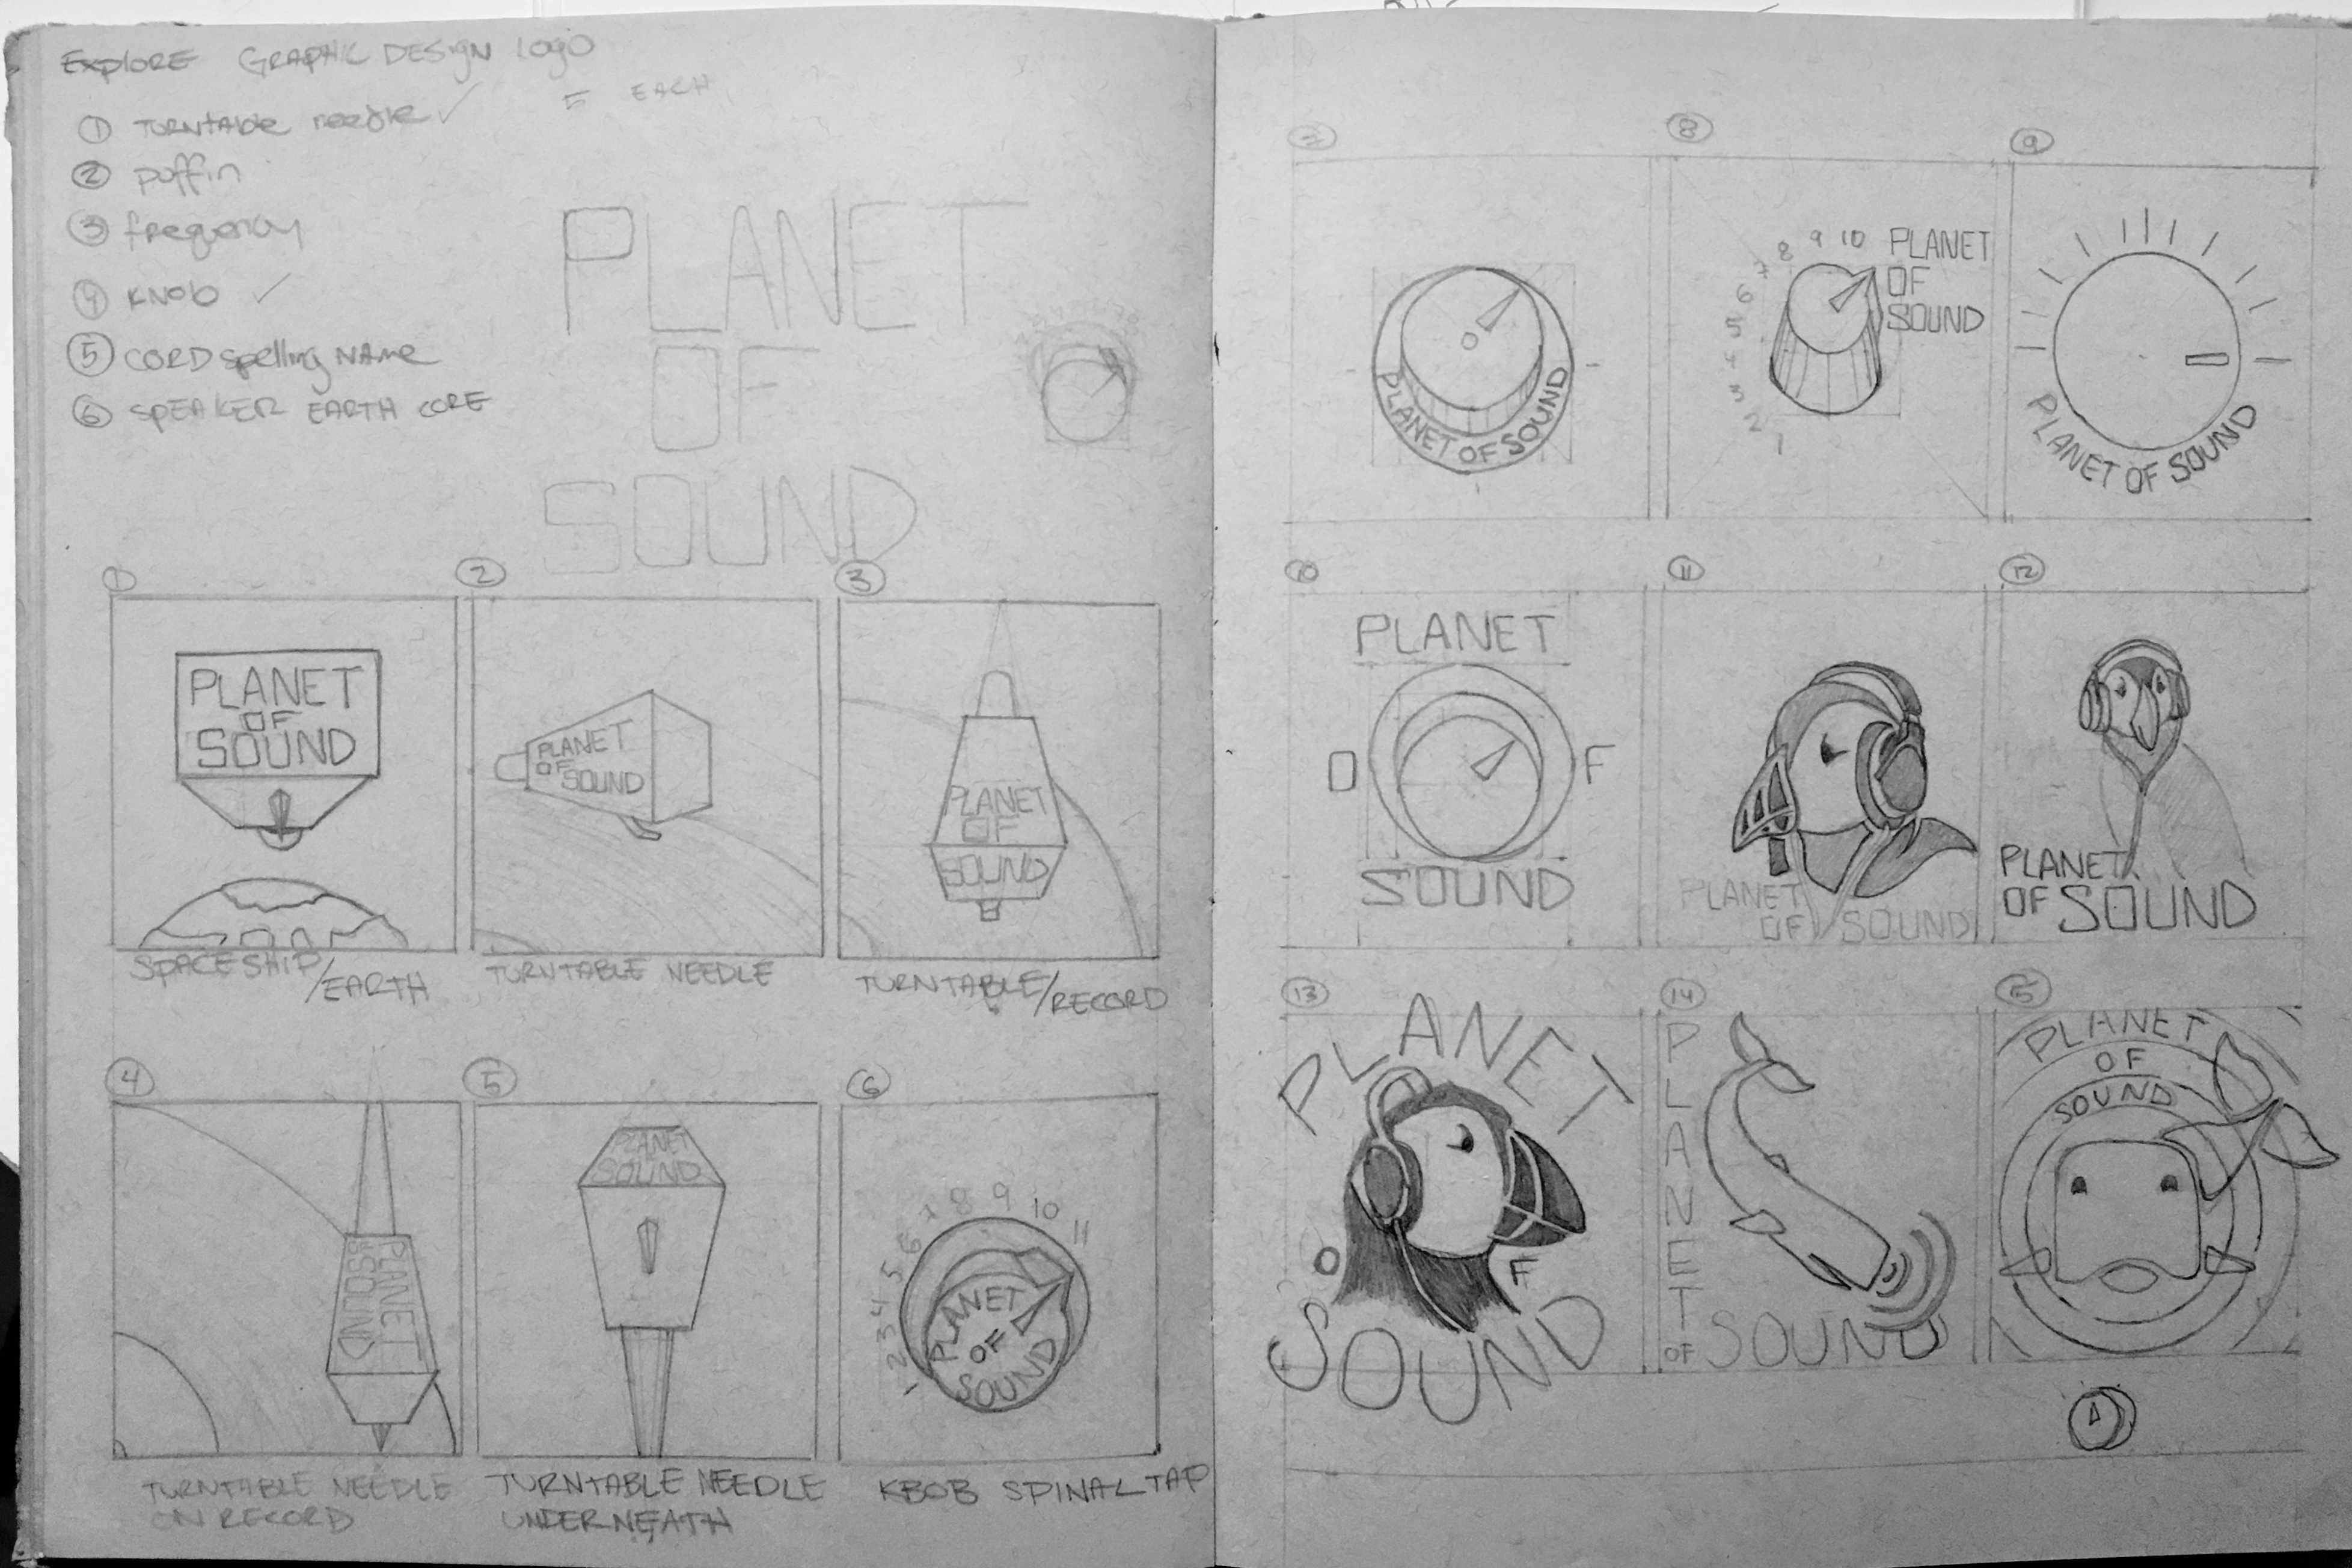 Explore GRAPHIC DESIGN LOGO
5 EACH
① TURNTABLE needle ✓
② puffin
③ frequency
④ KNOB ✓
⑤ CORD spelling NAME
⑥ SPEAKER EARTH CORE
PLANET
OF
SOUND
①
PLANET
OF
SOUND
SPACESHIP/EARTH
②
PLANET
OF
SOUND
TURNTABLE NEEDLE
③
PLANET
OF
SOUND
TURNTABLE/RECORD
④
PLANET
OF SOUND
TURNTABLE NEEDLE
ON RECORD
⑤
PLANET
SOUND
TURNTABLE NEEDLE
UNDERNEATH
⑥
1 2 3 4 5 6 7 8 9 10 11
PLANET
OF
SOUND
KBOB SPINAL TAP
⑦
PLANET OF SOUND
⑧
1 2 3 4 5 6 7 8 9 10
PLANET
OF
SOUND
⑨
PLANET OF SOUND
⑩
PLANET
O F
SOUND
⑪
PLANET
OF SOUND
⑫
PLANET
OF SOUND
⑬
PLANET
O F
SOUND
⑭
PLANET
OF SOUND
⑮
PLANET
OF
SOUND